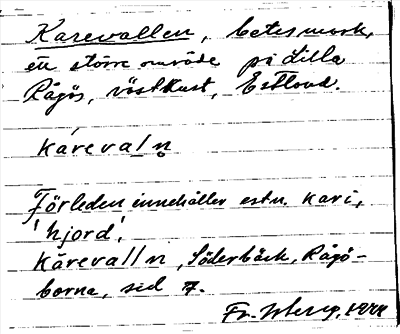 Karevallen, betesmark,
en större område på Lilla
Rågös, västkust, Estland.
káreval̥n̥
Förleden innehåller estn. kari,
'hjord'.
kārevalln, Söderbäck, Rågö-
borna, sid 7.
Fr.